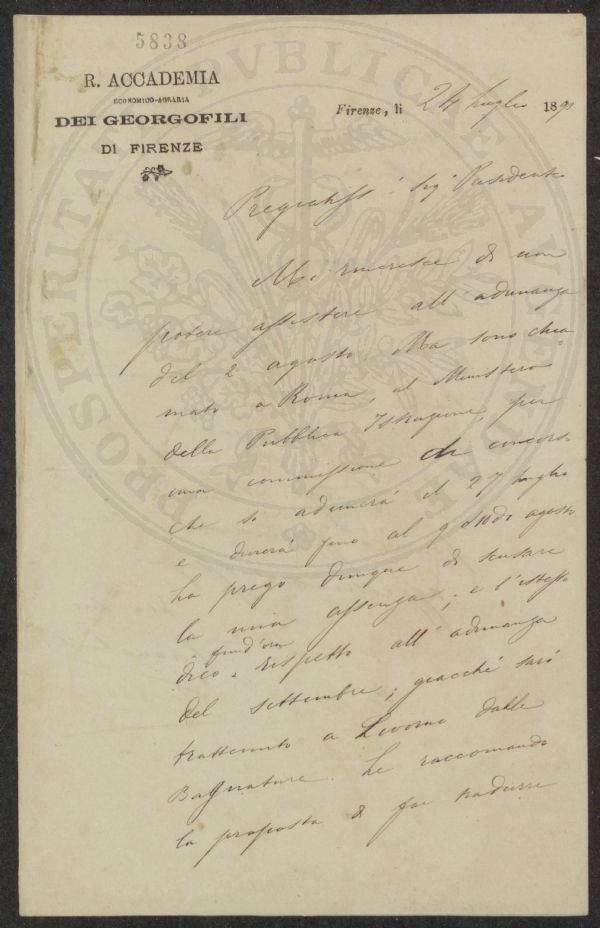 5838
R. ACCADEMIA
ECONOMICO-AGRARIA
DEI GEORGOFILI
DI FIRENZE
Firenze, li 24 luglio 1891
PROSPERITATI PVBLICAE AVGENDAE
Pregiatiss. Sigr Presidente
Mi rincresce di non
potere assistere all'adunanza
del 2 agosto. Ma sono chia-
mato a Roma, al Ministero
della Pubblica Istruzione, per
una commissione di concorso
che si adunerà il 27 luglio
e durerà fino al 9 o 10 di agosto
La prego dunque di scusare
la mia assenza; e l'istesso
dico fin d'ora rispetto all'adunanza
del settembre; giacché sarò
trattenuto a Livorno dalle
Bagnature. Le raccomando
la proposta di far tradurre